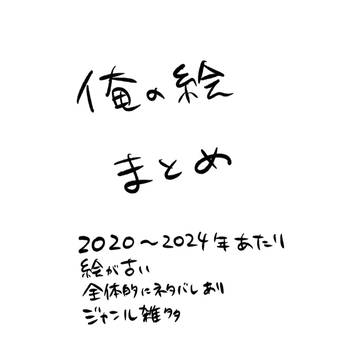 俺の絵
まとめ
2020〜2024年あたり
絵が古い
全体的にネタバレあり
ジャンル雑多